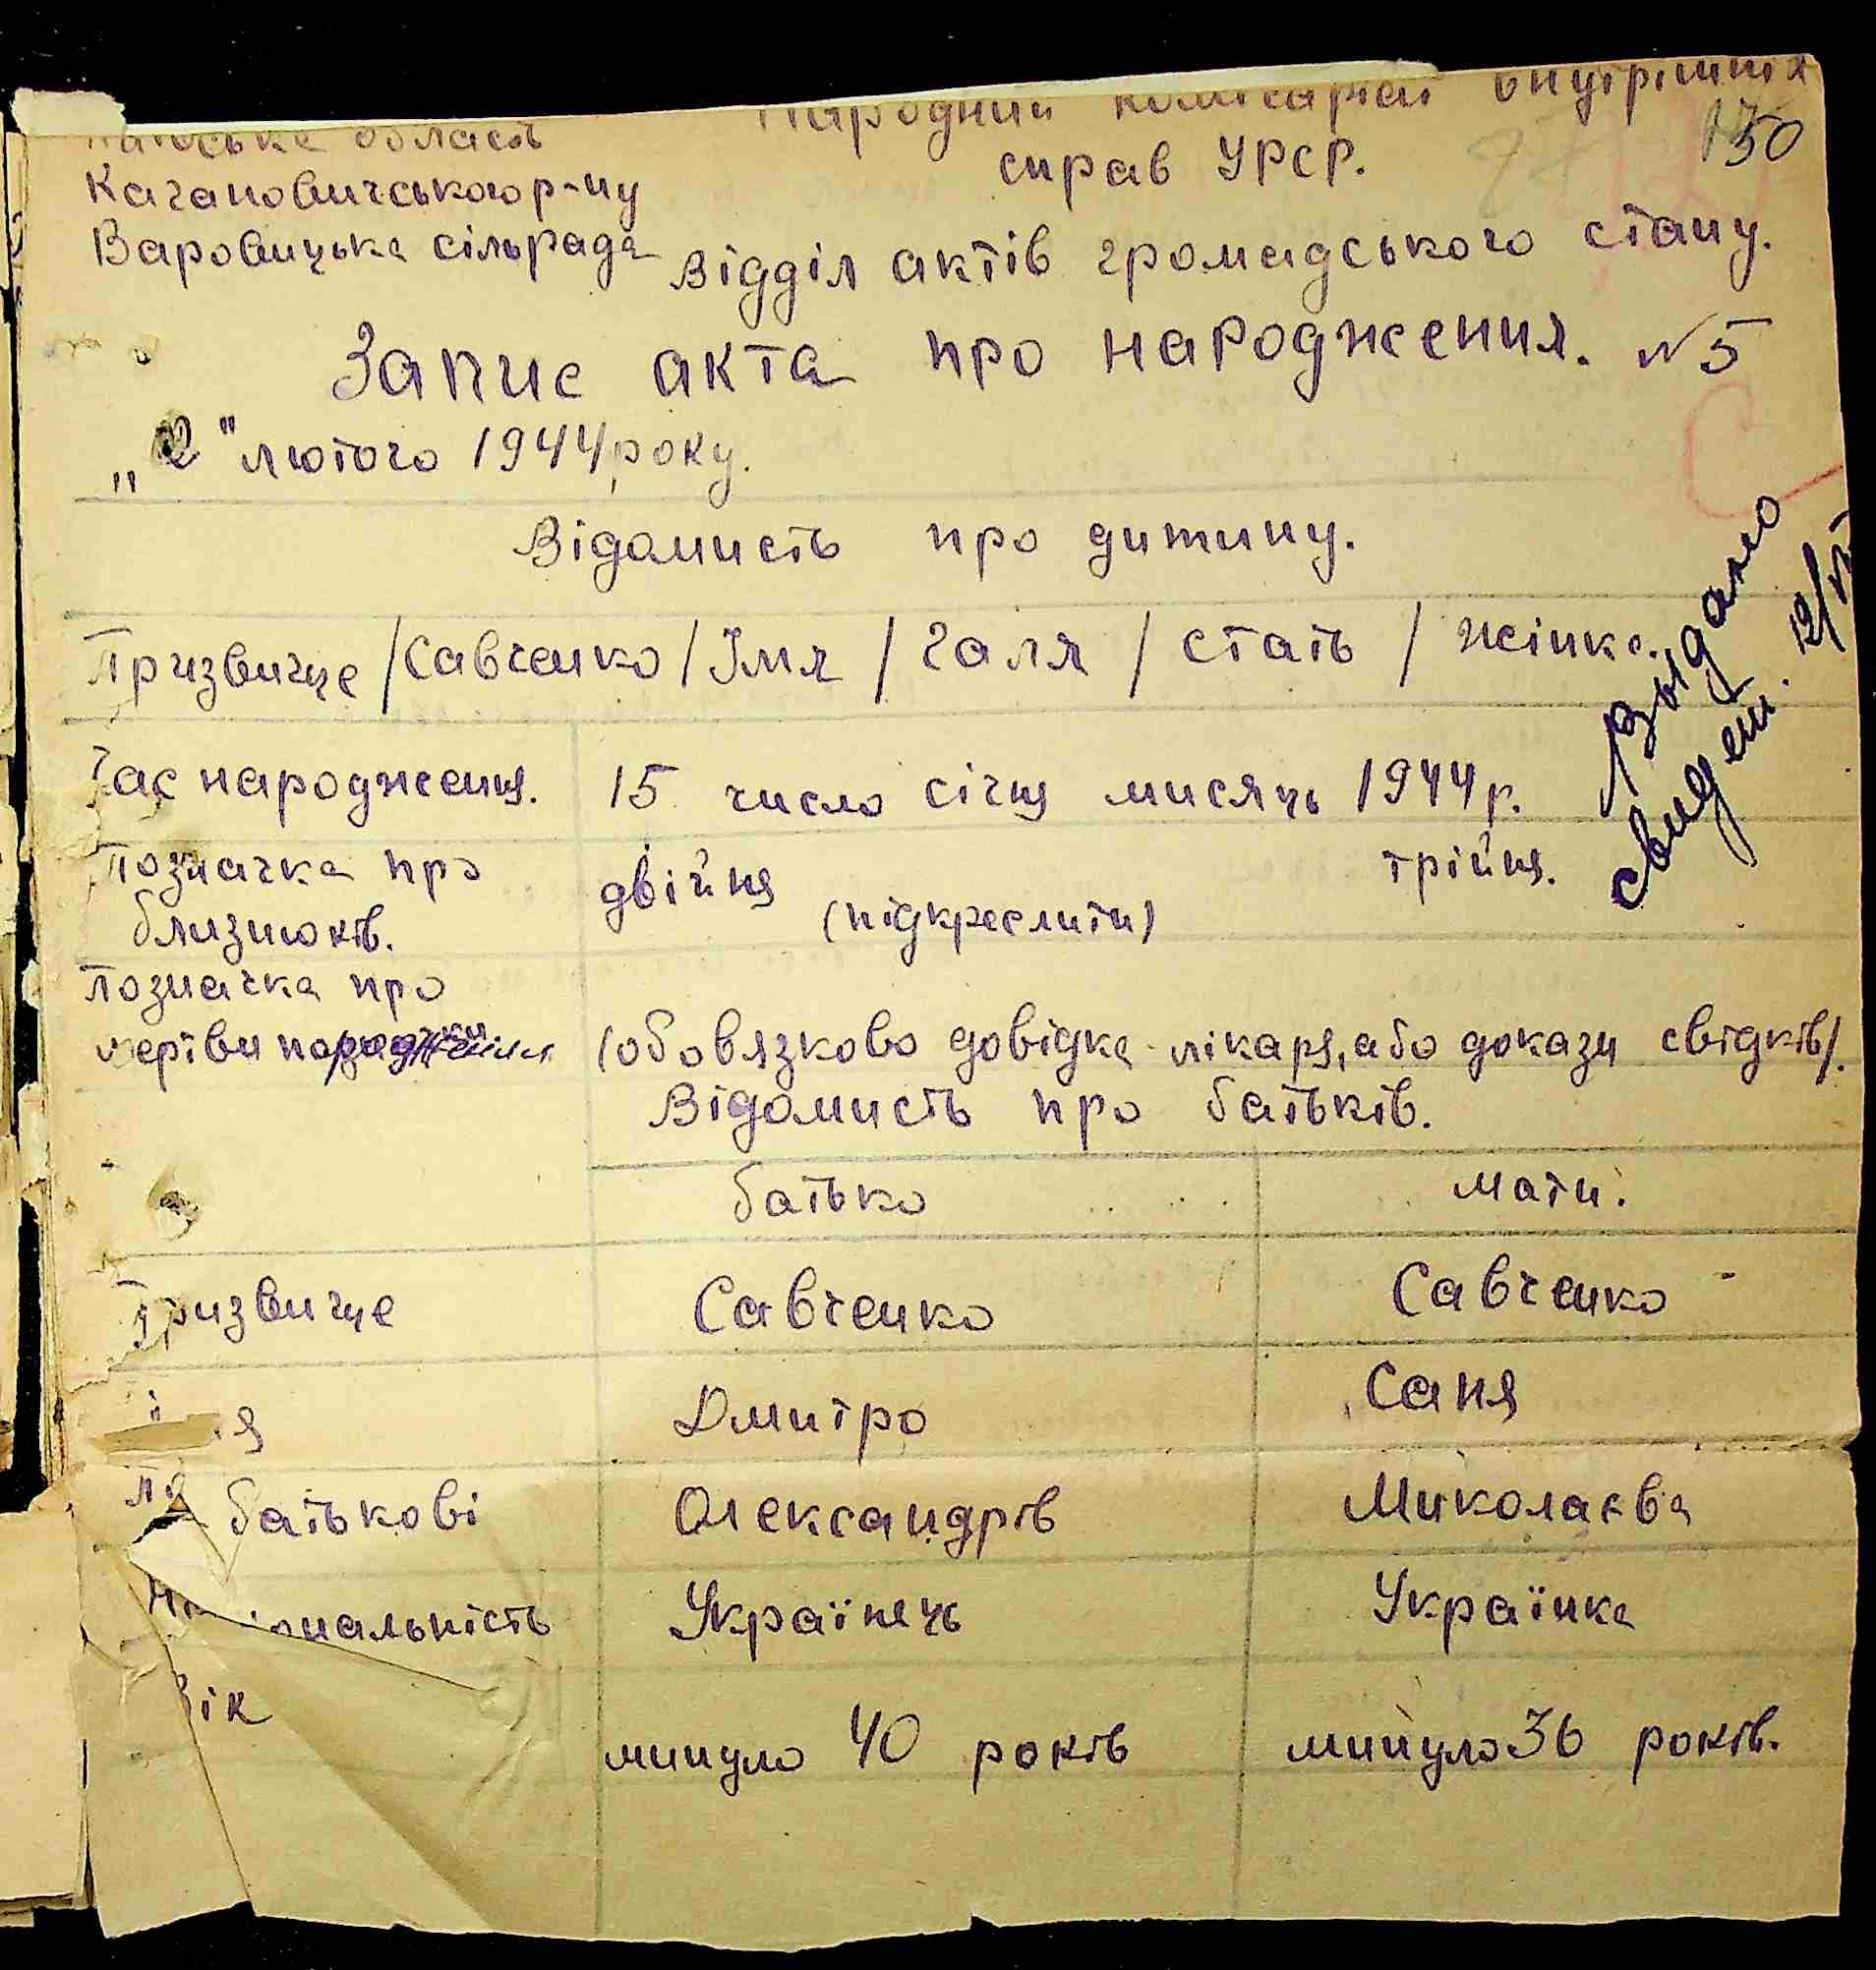 область
Народний комісаріат внутрішніх
50
справ УРСР.
Кагановичського р-ну
Варовицька сільрада
Відділ актів громадського стану.
Запис акта про народження. №5
„2" лютого 1944 року.
Відомисть про дитину.
Призвище / Савченко / Імя / Галя / стать / жінка.
Час народження. 15 число січня мисяць 1944 р.
Позначка про близнюків. двійня (підкреслити) трійня.
Позначка про
мертви народження (обовязково довідка лікаря, або докази свідків).
Выдано
свидет. 12/VI
Відомисть про батьків.
батько мати.
Призвище Савченко Савченко
Дмитро Саня
по батькові Олександрів Миколаєва
Національність Українець Українка
Вік минуло 40 років минуло 36 років.